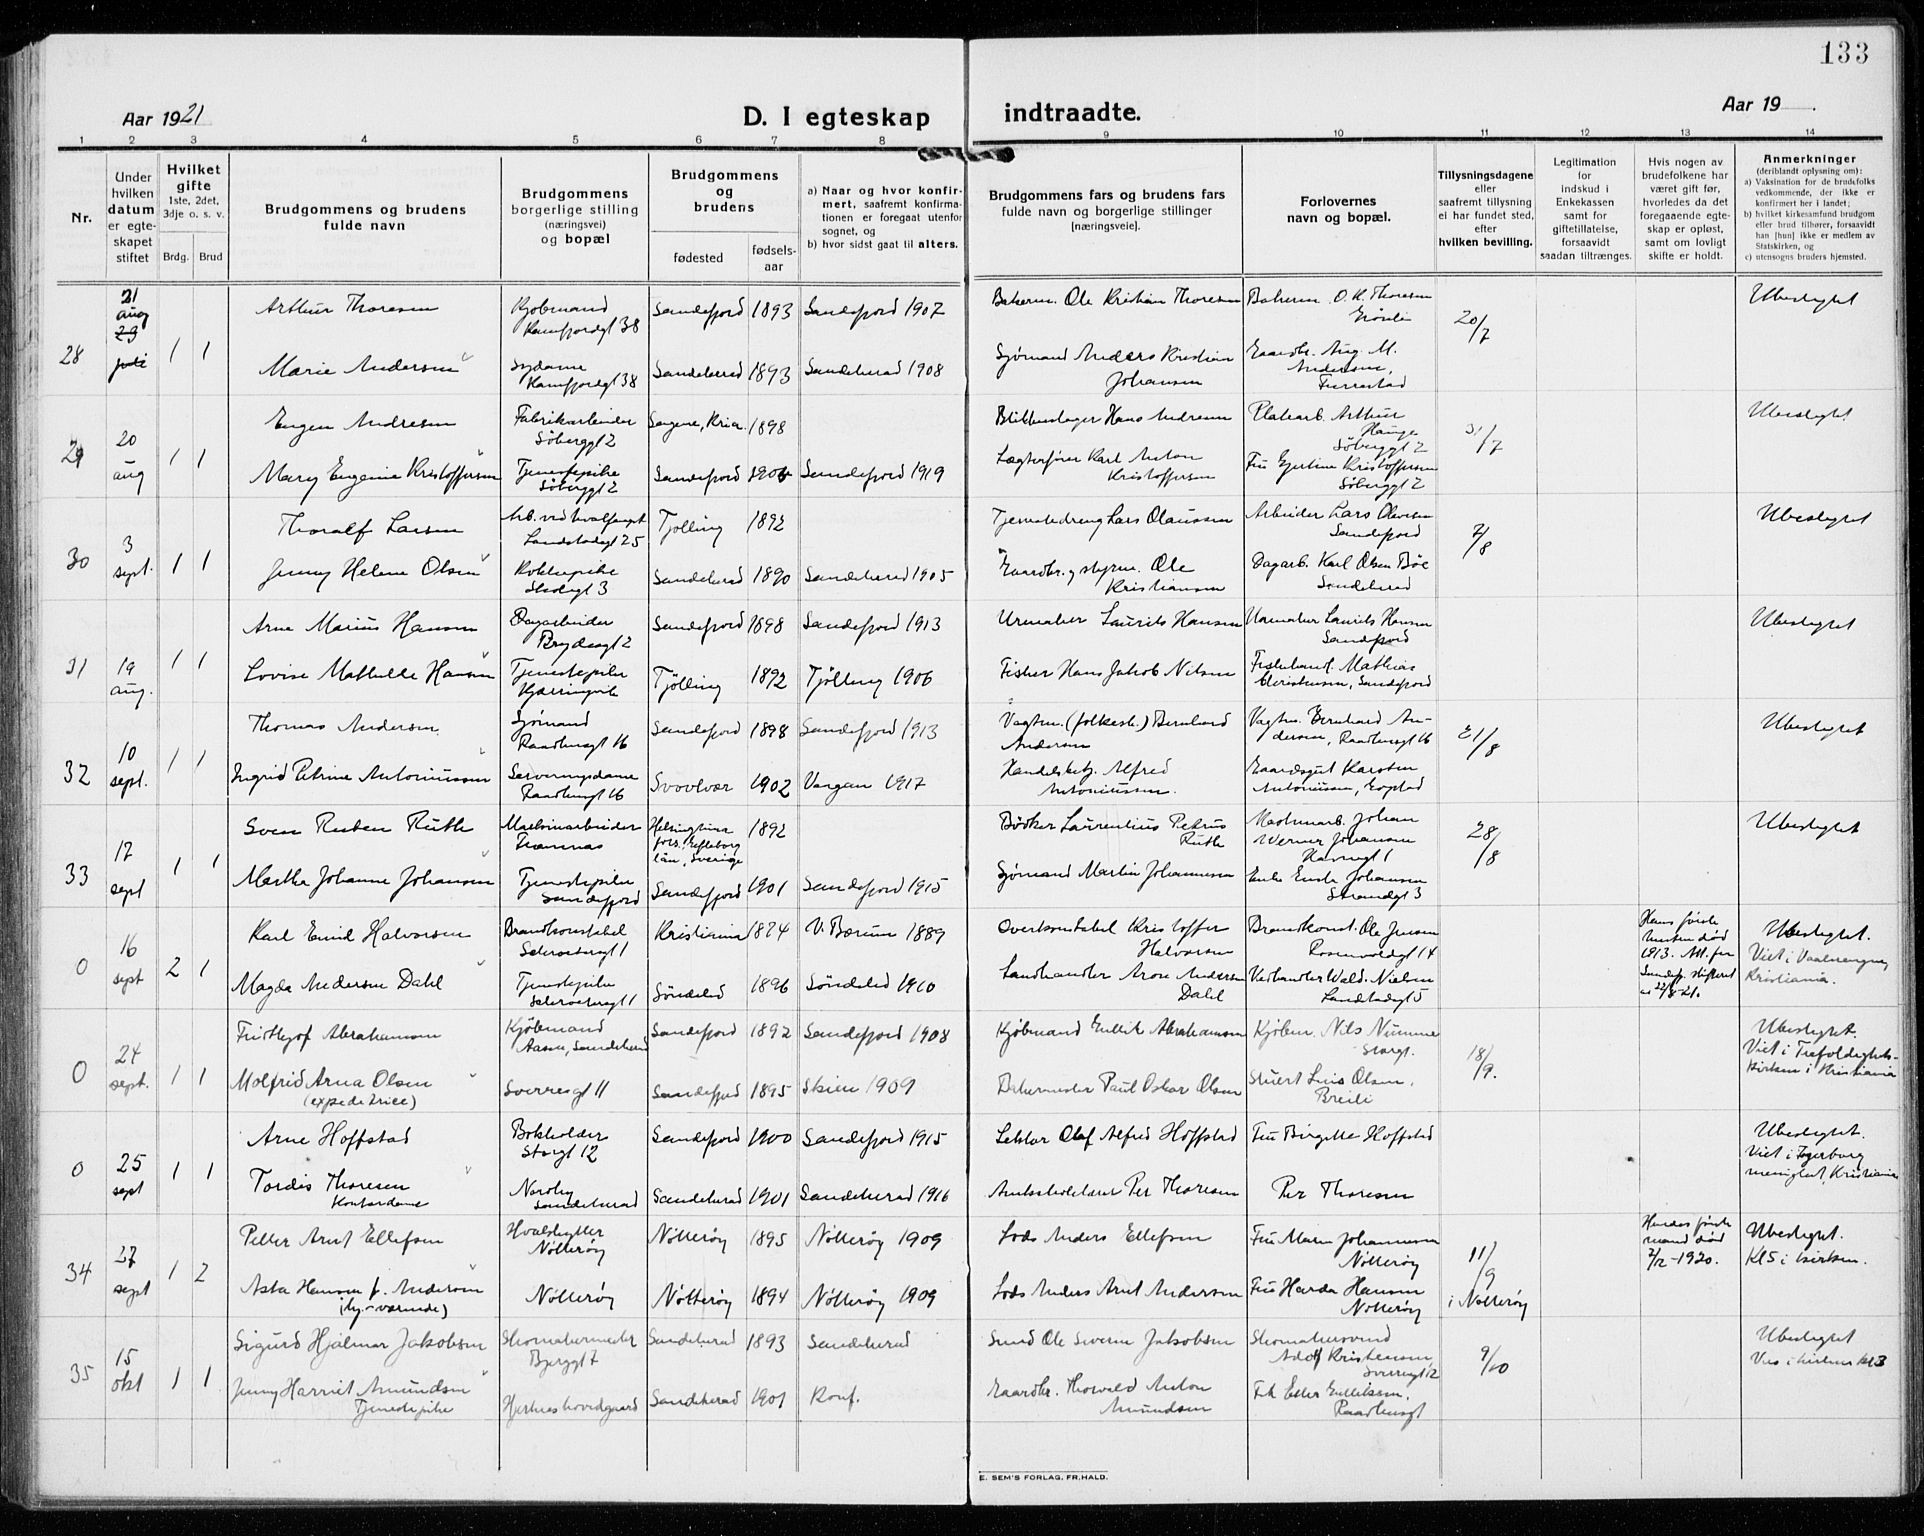 133
Aar 1921
D. I egteskap indtraadte.
Aar 19
1 2 3 4 5 6 7 8 9 10 11 12 13 14
Nr.
Under hvilken datum er egteskapet stiftet
Hvilket gifte 1ste, 2det, 3dje o. s. v.
Brdg. Brud
Brudgommens og brudens fulde navn
Brudgommens borgerlige stilling (næringsvei) og bopæl
Brudgommens og brudens
fødested
fødselsaar
a) Naar og hvor konfirmert, saafremt konfirmationen er foregaat utenfor sognet, og
b) hvor sidst gaat til alters.
Brudgommens fars og brudens fars fulde navn og borgerlige stillinger [næringsveie].
Forlovernes navn og bopæl.
Tillysningsdagene eller saafremt tillysning ei har fundet sted, efter hvilken bevilling.
Legitimation for indskud i Enkekassen samt for giftetillatelse, forsaavidt saadan tiltrænges.
Hvis nogen av brudefolkene har været gift før, hvorledes da det foregaaende egteskap er opløst, samt om lovligt skifte er holdt.
Anmerkninger (deriblandt oplysning om):
a) Vaksination for de brudefolks vedkommende, der ikke er konfirmert her i landet;
b) hvilket kirkesamfund brudgom eller brud tilhører, forsaavidt han [hun] ikke er medlem av Statskirken, og
c) utensogns bruders hjemsted.
28
21 aug
29 juli
1 1
Arthur Thoresen
Kjøbmand Kamfjordgt 38
Sandefjord 1893
Sandefjord 1907
Bakerm. Ole Kristian Thoresen
Bakerm. O. K. Thoresen
20/7
Ubeslegtet
Marie Andersen
Sydame Kamfjordgt 38
Sandeherad 1893
Sandeherad 1908
Sjømand Anders Kristian Johansen
Gaardbr. Aug. M. Andersen, Furustad
29
20 aug
1 1
Eugen Andresen
Fabrikarbeider Søberggt 2
Sagene, Kria. 1898
Blikkenslager Hans Andresen
Platearb. Arthur Hauge Søberggt 2
31/7
Ubeslegtet
Mary Eugenie Kristoffersen
Tjenestepike Søberggt 2
Sandefjord
Sandefjord 1919
Lægterfører Karl Anton Kristoffersen
Fru Gjertine Kristoffersen Søberggt 2
30
3 sept.
1 1
Thoralf Larsen
Arb. ved hvalfangst Landstadsgt 25
Tjølling 1892
Tjenestedreng Lars Olaussen
Arbeider Lars Olausen Sandefjord
7/8
Ubeslegtet
Jenny Helene Olsen
Kokkepike
Sandeherad 1890
Sandeherad 1905
Gaardbr. og styrm. Ole Kristiansen
Dagarb. Karl Olsen Bøe Sandeherad
31
19 aug.
1 1
Arne Marius Hansen
Dagarbeider Brydesgt 2
Sandefjord 1898
Sandefjord 1913
Urmaker Laurits Hansen
Urmaker Laurits Hansen Sandefjord
Ubeslegtet
Lovise Mathilde Hansen
Tjenestepike Kjærringvik
Tjølling 1892
Tjølling 1906
Fisker Hans Jakob Nilsen
Fiskehand. Mathias Christensen, Sandefjord
32
10 sept.
1 1
Thomas Andersen
Sjømand Raadhusgt 16
Sandefjord 1898
Sandefjord 1913
Vagtm. (folkesk.) Bernhard Andersen
Vagtm. Bernhard Andersen, Raadhusgt 16
21/8
Ubeslegtet
Ingrid Petrine Antoniussen
Serveringsdame Raadhusgt 16
Svovlvær 1902
Vargan 1917
Handelsbetj. Alfred Antoniussen.
Gaardsgut Karsten Antoniussen, Gogstad
33
17 sept
1 1
Sven Ruben Ruth
Maskinarbeider Framnæs
län, Sverige
1892
Bødker Laurentius Petrus Ruth
Maskinarb. Johan Werner Johansen
28/8
Ubeslegtet
Marthe Johanne Johansen
Tjenestepike Sandefjord
Sandefjord 1901
Sandefjord 1915
Sjømand Martin Johannessen
Enke Johansen Strandgt 3
0
16 sept
2 1
Karl Emil Halvorsen
Brandkonstabel
Kristiania 1874
V. Bærum 1889
Overkonstabel Kristoffer Halvorsen
Brandkonst. Ole Jensen Rosenvoldgt 14
Hans første hustru død 1913. Att. fra Sandefj. skifteret av 22/8-21.
Ubeslegtet. Viet i Vaalerengen Kristiania.
Magda Andersen Dahl
Tjenestepike
Søndeled 1896
Søndeled 1910
Landhandler Arne Andersen Dahl
Vedhandler Wald. Nielsen Landstadsgt 5
0
24 sept.
1 1
Fridtjof Abrahamsen
Kjøbmand Aasen, Sandeherad
Sandefjord 1892
Sandefjord 1908
Kjøbmand Gullik Abrahamsen
Kjøbm. Nils Numme Storgt.
18/9.
Ubeslegtet. Viet i Trefoldighetskirken i Kristiania
Molfrid Arna Olsen (expeditrice)
Sverresgt 11
Sandefjord 1895
Skien 1909
Bakermester Paul Oskar Olsen
Stuert Luis Olsen, Breili
0
25 sept
1 1
Arne Hoffstad
Bokholder Storgt 12
Sandefjord 1900
Sandefjord 1915
Lektor Olaf Alfred Hoffstad
Fru Birgitte Hoffstad
Ubeslegtet. Viet i Fagerborg menighet, Kristiania
Tordis Thoresen Kontordame
Nordby Sandeherad
Sandeherad 1901
Sandeherad 1916
Per Thoresen
Per Thoresen
34
27 sept
1 2
Petter Arnt Ellefsen
Hvalskytter Nøtterøy
Nøtterøy 1895
Nøtterøy 1909
Lods Anders Ellefsen
Fru Maren Johannessen Nøtterøy
11/9 i Nøtterøy
Hendes første mand død 7/12-1920.
Ubeslegtet. Kl 5 i kirken.
Asta Hansen f. Andersen (hj.-værende)
Nøtterøy
Nøtterøy 1894
Nøtterøy 1909
Lods Anders Arnt Andersen
Fru Harda Hansen Nøtterøy
35
15 okt
1 1
Sigurd Hjalmar Jakobsen
Skomakermester Bjerggt 7
Sandeherad 1893
Sandeherad
Smed Ole Severin Jakobsen
Skomakersvend Adolf Kristensen, Sverresgt 12
9/10
Ubeslegtet Vies i kirken kl 3
Jenny Harriet Amundsen Tjenestepike
Hjertnes hovedgaard
Sandeherad 1901
Konf.
Gaardbr. Thorvald Anton Amundsen
Frk Ester Gulliksen, Raadhusgt
E. SEM'S FORLAG, FR.HALD.